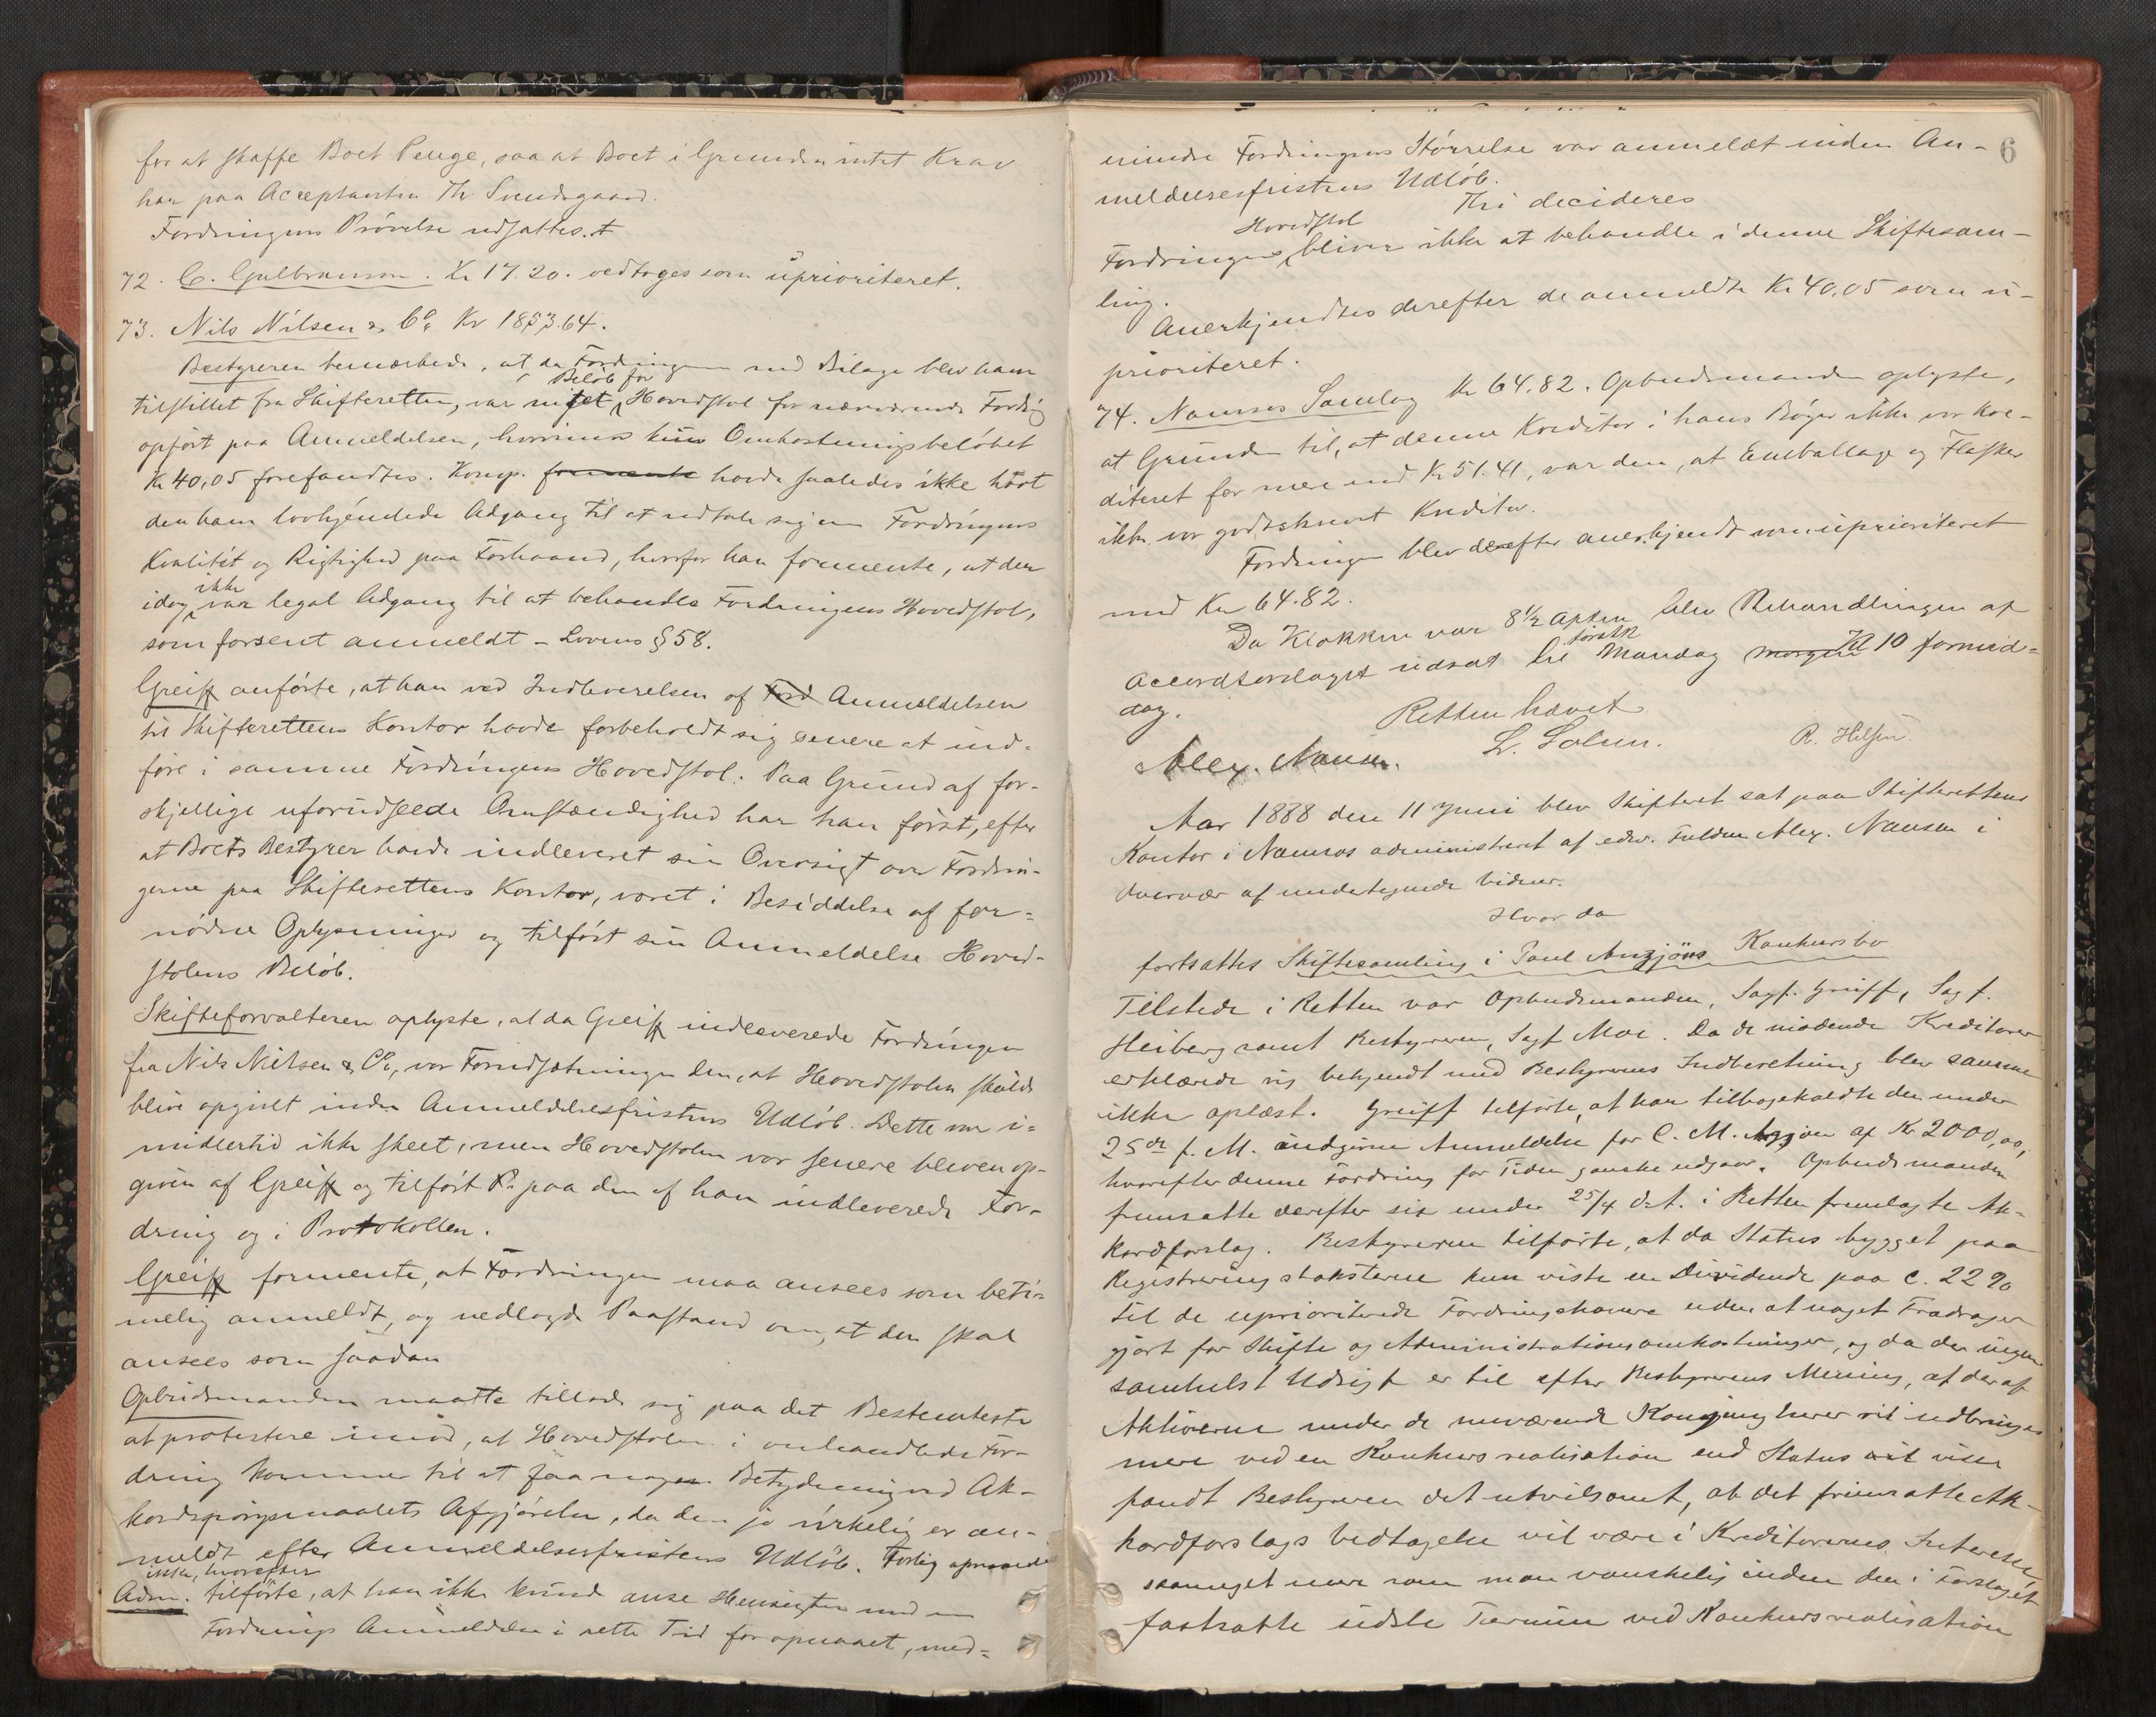 for at skaffe Boet Penge, saa at Boet i Grunden intet Krav
har paa Acceptanten Th. Svendsgaard.
Fordringens Prövelse udsattes.
72. C. Gulbranson. Kr 17.20. vedtoges som uprioriteret.
73. Nils Nilsen & Co. Kr 1853.64.
Bestyreren bemærkede, at da Fordringen med Bilage blev ham
tilstillet fra Skifteretten, var intet Beløb for Hovedstol for nærværende Fordrg
opfört paa Anmeldelsen, hvorimod kun Omkostningsbelöbet
Kr 40,05 forefandtes. Komp. formente havde saaledes ikke havt
den ham lovhjemlede Adgang til at udtale sig om Fordringens
Kvalitét og Rigtighed paa Forhaand, hvorfor han formente, at der
idag ikke var legal Adgang til at behandle Fordringens Hovedstol,
som forsent anmeldt – Lovens § 58.
Greiff anförte, at han ved Indleverelsen af Ford Anmeldelsen
til Skifterettens Kontor havde forbeholdt sig senere at ind-
före i samme Fordringens Hovedstol. Paa Grund af for-
skjellige uforudseede Omstændighed har han först, efter
at Boets Bestyrer havde indleveret sin Oversigt over Fordrin-
gerne paa Skifterettens Kontor, været i Besiddelse af for-
nödne Oplysninger og tilfört sin Anmeldelse Hoved-
stolens Belöb.
Skifteforvalteren oplyste, at da Greiff indleverede Fordringen
fra Nils Nielsen & Co, var Forudsætningen den, at Hovedstolen skulde
blive opgivet inden Anmeldelsesfristens Udlöb. Dette var i-
midlertid ikke skeet, men Hovedstolen var senere bleven op-
given af Greiff og tilfört paa den af han indleverede For-
dring og i Protokollen.
Greiff formente, at Fordringen maa ansees som beti-
melig anmeldt, og nedlagde Paastand om, at den skal
ansees som saadan
Opbudsmanden maatte tillade sig paa det Bestemteste
at protestere imod, at Hovedstolen i omhandlede For-
dring kommer til at faa nogen Betydning ved Ak-
kordspörgsmaalets Afgjörelse, da den jo virkelig er an-
meldt efter Anmeldelsesfristens Udlöb. Forlig opnaaedes
ikke, hvorefter
Adm. tilförte, at han ikke kunde anse Hensigten med en
Fordrings Anmeldelse i rette Tid for opnaaet, med-
6
mindre Fordringens Störrelse var anmeldt inden An-
meldelsesfristens Udlöb.
Thi decideres
Fordringens Hovedstol bliver ikke at behandle i denne Skiftesam-
ling.
Anerkjendtes derefter de anmeldte Kr 40,05 som u-
prioriteret.
74. Namsos Samlag Kr 64.82. Opbudsmanden oplyste,
at Grunden til, at denne Kreditor i hans Böger ikke var kre-
diteret for mere end Kr 51.41, var den, at Emballage og Flasker
ikke var godtskrevet Kreditor.
Fordringen blev derefter anerkjendt som uprioriteret
med Kr 64.82.
Da Klokken var 8½ Aften blev Behandlingen af
Accordforslaget udsat til förstk Mandag morgen Kl 10 formid-
dag.
Retten hævet
Alex. Nansen. L. Solem. R. Hilsen.
Aar 1888 den 11 Juni blev Skifteret sat paa Skifterettens
Kontor i Namsos administreret af edsv. Fuldm. Alex. Nansen i
Overvær af undertegnede Vidner.
Hvor da
fortsattes Skiftesamling i Paul Anzjöns Konkursbo
Tilstede i Retten var Opbudsmanden, Sagf. Greiff, Sagf.
Heiberg samt Bestyreren, Sagf Moe. Da de mødende Kreditorer
erklærede sig bekjendt med Bestyrerens Indberetning blev samme
ikke oplæst. Greiff tilførte, at han tilbagekaldte den under
25de f. M. indgivne Anmeldelse for C. M. Anzjön af Kr 2000,00,
hvorefter denne Fordring for Tiden ganske udgaar. Opbudsmanden
fremsatte derefter sit under 25/4 d. A. i Retten fremlagte Ak-
kordforslag. Bestyreren tilførte, at da Status bygget paa
Registreringstaksterne kun viste en Dividende paa c. 22 %
til de uprioriterede Fordringshavere uden at noget Fradrag er
gjort for Skifte og Administrationsomkostninger, og da der ingen
somhelst Udsigt er til efter Bestyrerens Mening, at der af
Aktiverne under de nuværende Konjunkturer vil udbringes
mere ved en Konkursrealisation end Status vil viser
fandt Bestyreren det utvilsomt, at det fremsatte Ak-
kordforslags Vedtagelse vil være i Kreditorernes Interesse
saameget mere som man vanskelig inden den i Forslaget
fastsatte sidste Termin ved Konkursrealisation